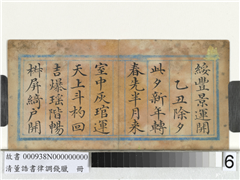 綏豐景運開
乙丑除夕
此夕新年轉
春光半月來
室中灰琯運
天上斗杓回
吉爆瑤階暢
椒屏綺戶開
故書 000938N000000000
清董誥書律調錢臘 冊
6